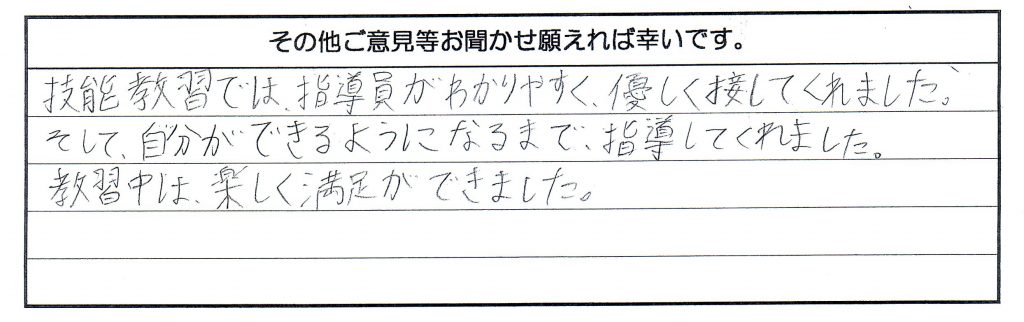 その他ご意見等お聞かせ願えれば幸いです。
技能教習では、指導員がわかりやすく、優しく接してくれました。
そして、自分ができるようになるまで、指導してくれました。
教習中は、楽しく満足ができました。